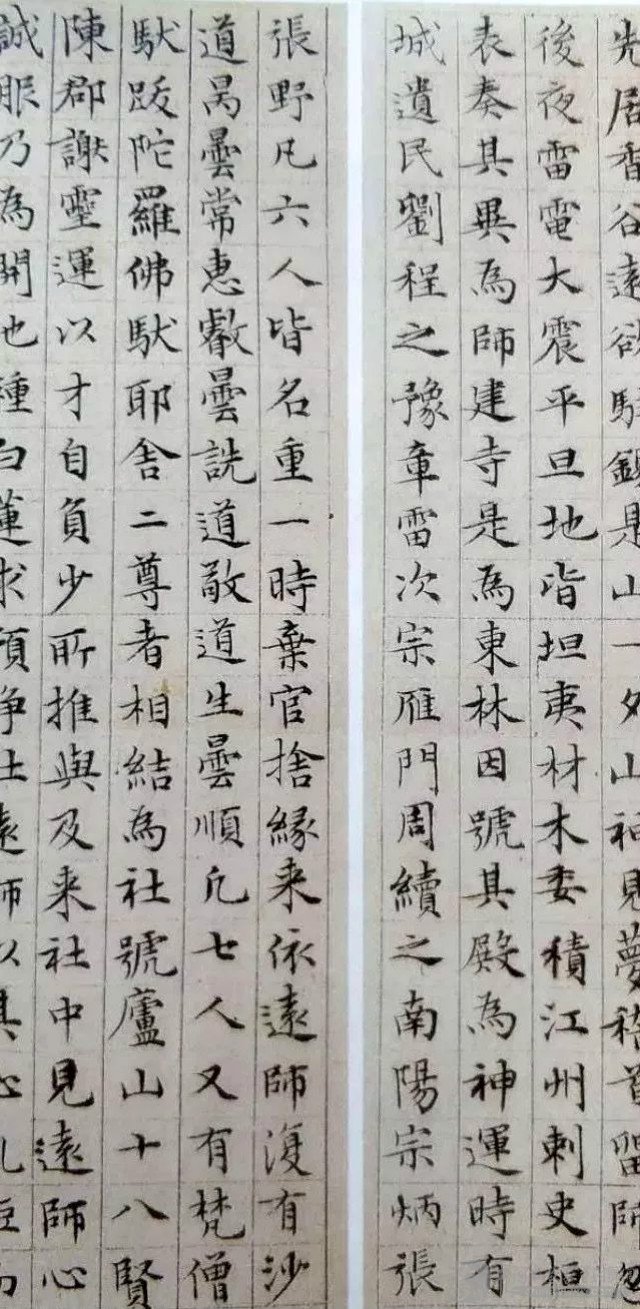 先居香谷遠欲駐錫是山一夕山神見夢稽首留師忽
後夜雷電大震平旦地皆坦夷材木委積江州刺史桓
表奏其異為師建寺是為東林因號其殿為神運時有
城遺民劉程之豫章雷次宗雁門周續之南陽宗炳張
張野凡六人皆名重一時棄官捨緣来依遠師復有沙
道昺曇常惠叡曇詵道敬道生曇順凢七人又有梵僧
馱跋陀羅佛馱耶舍二尊者相結為社號廬山十八賢
陳郡謝靈運以才自負少所推與及来社中見遠師心
誠服乃為開池種白蓮求預净社遠師以其心亂拒而